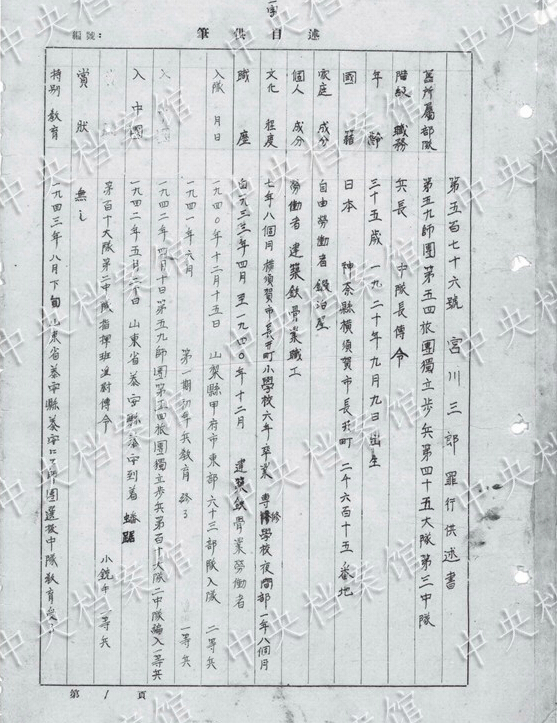 編號：
筆供自述
第五百七十六號 宮川三郎 罪行供述書
舊所屬部隊 第五九師團第五四旅團獨立步兵第四十五大隊第三中隊
階級 職務 兵長 中隊長傳令
年齡 三十五歲 一九二十年九月九日出生
國籍 日本 神奈縣橫須賀市長井町 二千六百十五番地
家庭 成分 自由勞働者 鍛冶屋
個人 成分 勞働者 建築鉄骨業職工
文化 程度 七年八個月 橫須賀市長井町小學校六年卒業 專修學校夜間部一年八個月
職歷 自一九三三年四月 至一九四〇年十二月 建築鉄骨業勞働者
入隊 月日 一九四〇年十二月十五日 山梨縣甲府市東部六十三部隊入隊 二等兵
一九四一年六月 第一期初年兵教育 終了 一等兵
一九四二年四月十日第五九師團第五四旅團獨立步兵第百十大隊二中隊編入一等兵
入中國 一九四二年五月 日 山東省泰安縣泰安到着 蟠踞
第百十大隊第二中隊指揮班 傳令 小銃手 一等兵
賞狀 無シ
特別 教育 一九四三年八月下旬山東省泰安縣泰安 師團選拔中隊教育受
第 1 頁
中央档案馆